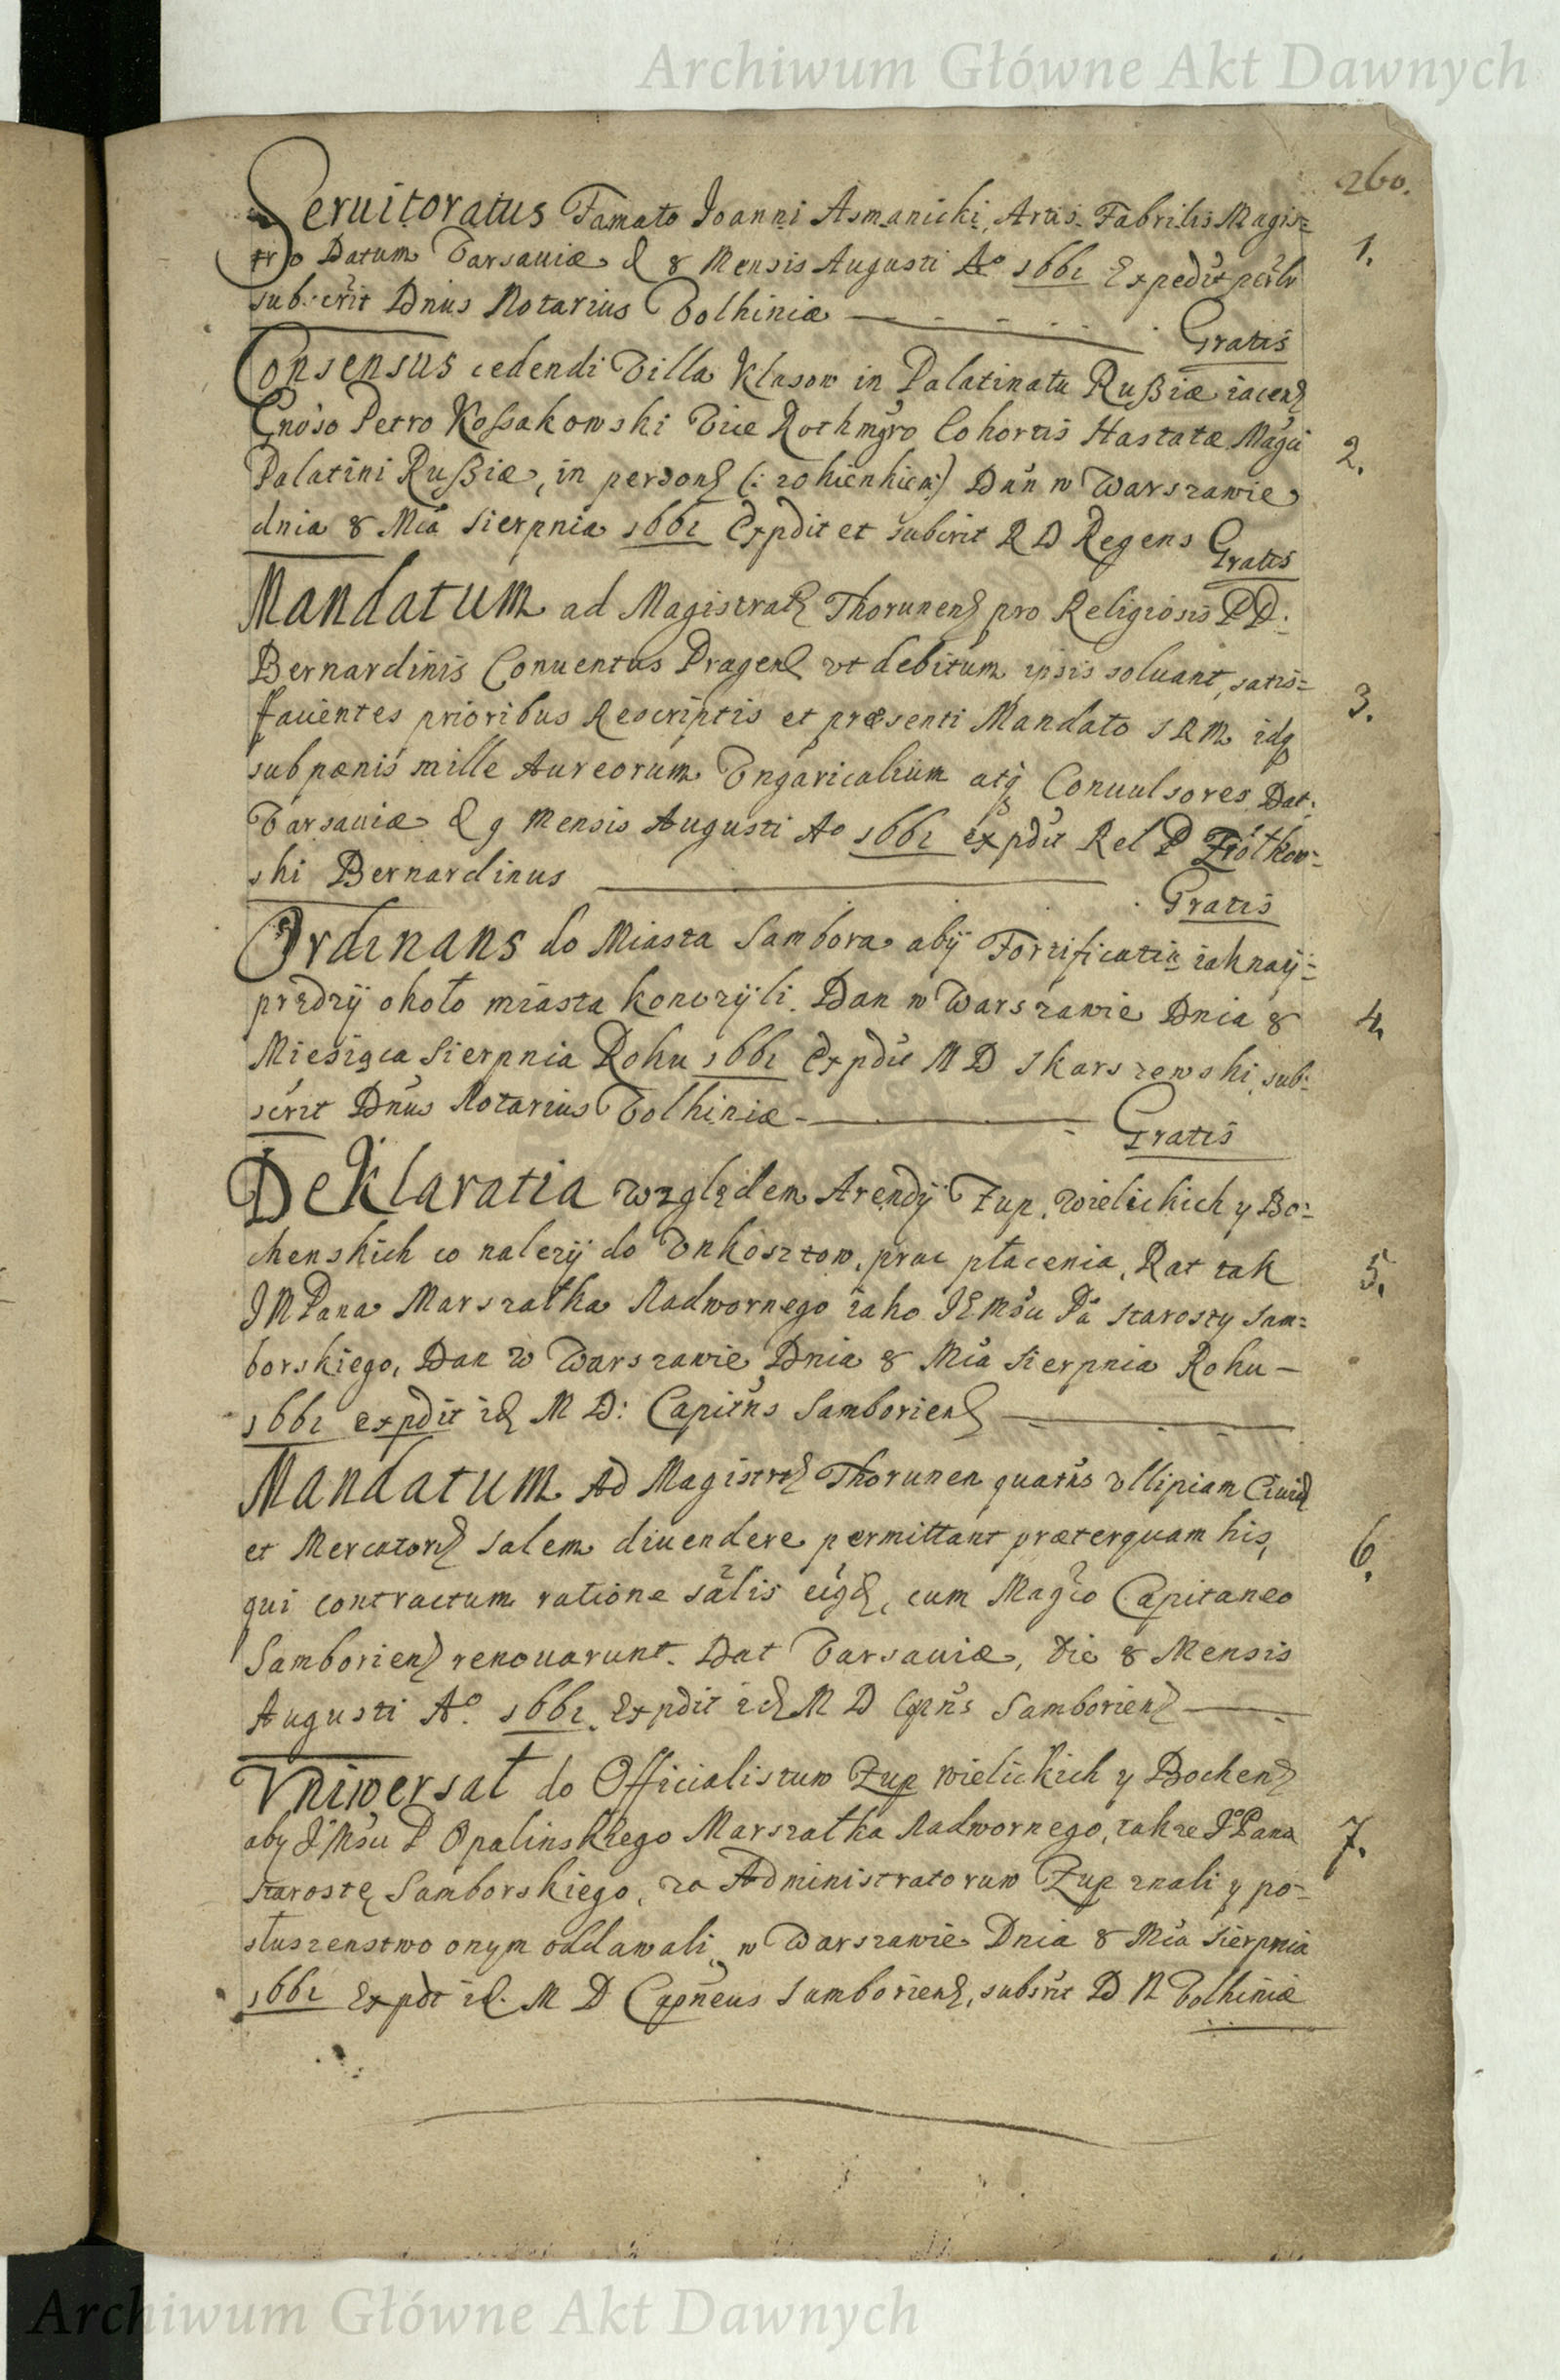 Archiwum Główne Akt Dawnych
260.
Seruitoratus Famato Joanni Asmanicki, Artis Fabrilis Magis=
tro Datum Varsauiæ d 8 Mensis Augusti Ao 1661 Expedit
1.
subscrit Dnus Notarius Volhiniæ
Gratis
Consensus cedendi Villa Klasow in Palatinatu Rußiæ iacen
Gnoso Petro Kossakowski Vice Rothmgro Cohortis Hastatæ Magci
2.
Palatini Rußiæ, in person (: Dan w Warszawie
dnia 8 Mca Sierpnia 1661 Expdit et subscrit R D Regens Gratis
Mandatum ad Magistrat Thorunen pro Religiosis PD:
Bernardinis Conuentus Pragen vt debitum ipsis soluant, satis=
3.
facientes prioribus Rescriptis et præsenti Mandato S R M idq
sub pœnis mille Aureorum Vngaricalium atq Conuulsores Dat:
Varsauiæ d 9 Mensis Augusti Ao 1661 expdit Rel P Żrotkow=
ski Bernardinus
Gratis
Ordinans do Miasta Sambora abÿ Fortificatią iaknaÿ=
prędzÿ około miasta konczÿli. Dan w Warszawie Dnia 8
4.
Miesiąca Sierpnia Roku 1661 Expdit M D Skarszewski, sub:
scrit Dnus Notarius Volhiniæ
Gratis
DeKlaratia względem Arendÿ Zup. Wielickich y Bo=
chenskich co nalezÿ do Vnkosztow, prac płacenia, Rat tak
5.
J M Pana Marszałka Nadwornego iako JE Mści Pa Starosty Sam=
borskiego, Dan w Warszawie Dnia 8 Mca Sierpnia Roku –
1661 expdit id M D: Capitns Samborien
Mandatum Ad Magistrt Thorunen quatns vllipiam Ciui
et Mercator salem diuendere permittant præterquam his,
6.
qui contractum ratione salis cum Magco Capitaneo
Samborien renouarunt. Dat Varsauiæ, Die 8 Mensis
Augusti Ao. 1661. Expdit id M D Cptns Samborien
Vniwersał do Officialistuw Zup wielickich y Bochen
aby J Mści P Opalinskiego Marszałka Nadwornego, takze J Pana
7.
Starostę Samborskiego, za Administratoruw Zup znali y po=
słuszenstwo onym oddawali, w Warszawie Dnia 8 Mca Sierpnia
1661 Expdt id. M D Capneus Samborien, subsrit D N Volhiniæ
Archiwum Główne Akt Dawnych